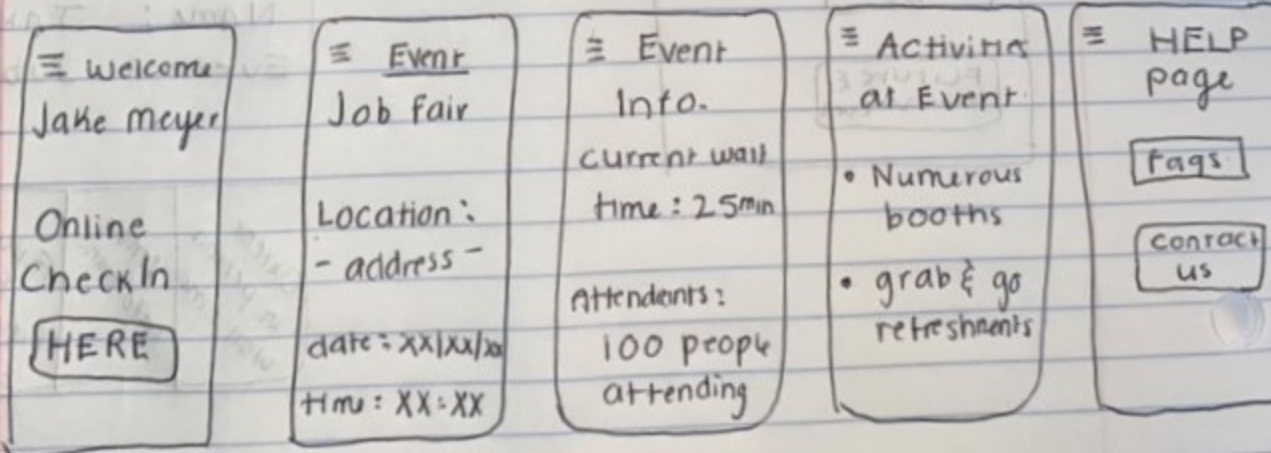 ≡ Welcome
Jake meyer
Online
CheckIn
HERE
≡ Event
Job fair
Location:
- address -
date: xx/xx/xx
time: XX:XX
≡ Event
Info.
current wait
time: 25min
Attendants:
100 people
attending
≡ Activities
at Event
• Numerous
booths
• grab & go
refreshments
≡ HELP
page
Faqs
contact
us